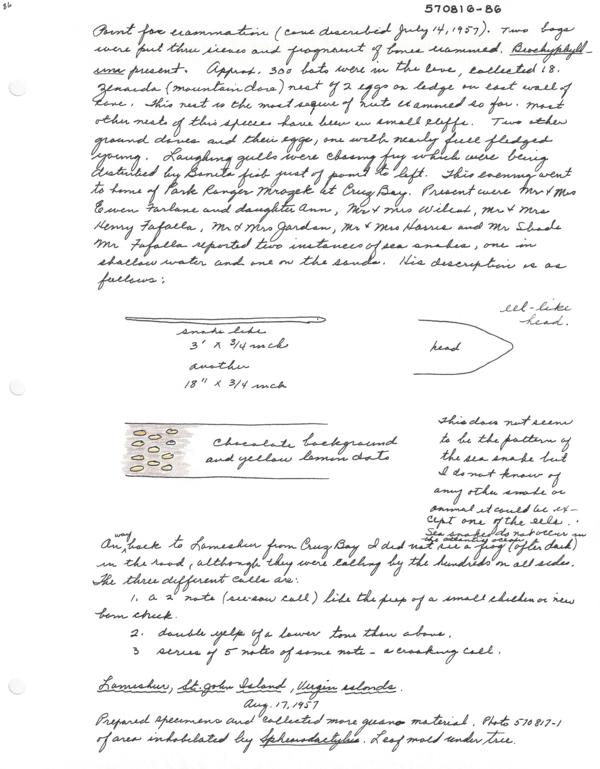 86
570816-86
Point for examination (cave described July 14, 1957). Two bags
were put thru sieves and fragment of bones examined. Brachyphyll-
present. Approx. 300 bats were in the cave, collected 18.
Zenaida (mountain dove) nest of 2 eggs on ledge on east wall of
cave. This nest is the most secure of nests examined so far. Most
other nests of this species have been on small cliffs. Two other
ground doves and their eggs, one with nearly full fledged
young. Laughing gulls were chasing fry which were being
disturbed by Bonita fish just off point to left. This evening went
to home of Park Ranger Mrozek at Cruz Bay. Present were Mr & Mrs
Ewen Farlane and daughter Ann, Mr & Mrs Wilcut, Mr & Mrs
Henry Fafalla, Mr & Mrs Jardan, Mr & Mrs Harris and Mr Shade
Mr Fafalla reported two instances of sea snakes, one in
shallow water and one on the sands. His description is as
follows:
snake like
3' x 3/4 inch
another
18" x 3/4 inch
eel-like
head.
head
Chocolate background
and yellow lemon dots
This does not seem
to be the pattern of
the sea snake but
I do not know of
any other snake or
animal it could be ex-
cept one of the eels.
Sea snakes do not occur in
the atlantic ocean,
On way back to Lameshur from Cruz Bay I did not see a frog (after dark)
in the road, although they were calling by the hundreds on all sides.
The three different calls are:
1. a 2 note (see-saw call) like the peep of a small chicken or new
born chick.
2. double yelp of a lower tone than above.
3 series of 5 notes of same note - a croaking call.
Lameshur, St. John Island, Virgin islands.
Aug. 17, 1957
Prepared specimens and collected more guano material. Photo 570817-1
of area inhabited by Sphaerodactylus. Leaf mold under tree.